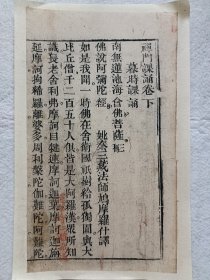 禪門課誦卷下
暮時課誦
南無蓮池海會佛菩薩三稱
佛說阿彌陀經
姚秦三藏法師鳩摩羅什譯
如是我聞一時佛在舍衛國祇樹給孤獨園與大
比丘僧千二百五十人俱皆是大阿羅漢眾所知
識長老舍利弗摩訶目犍連摩訶迦葉摩訶迦旃
延摩訶拘絺羅離婆多周利槃陀伽難陀阿難陀